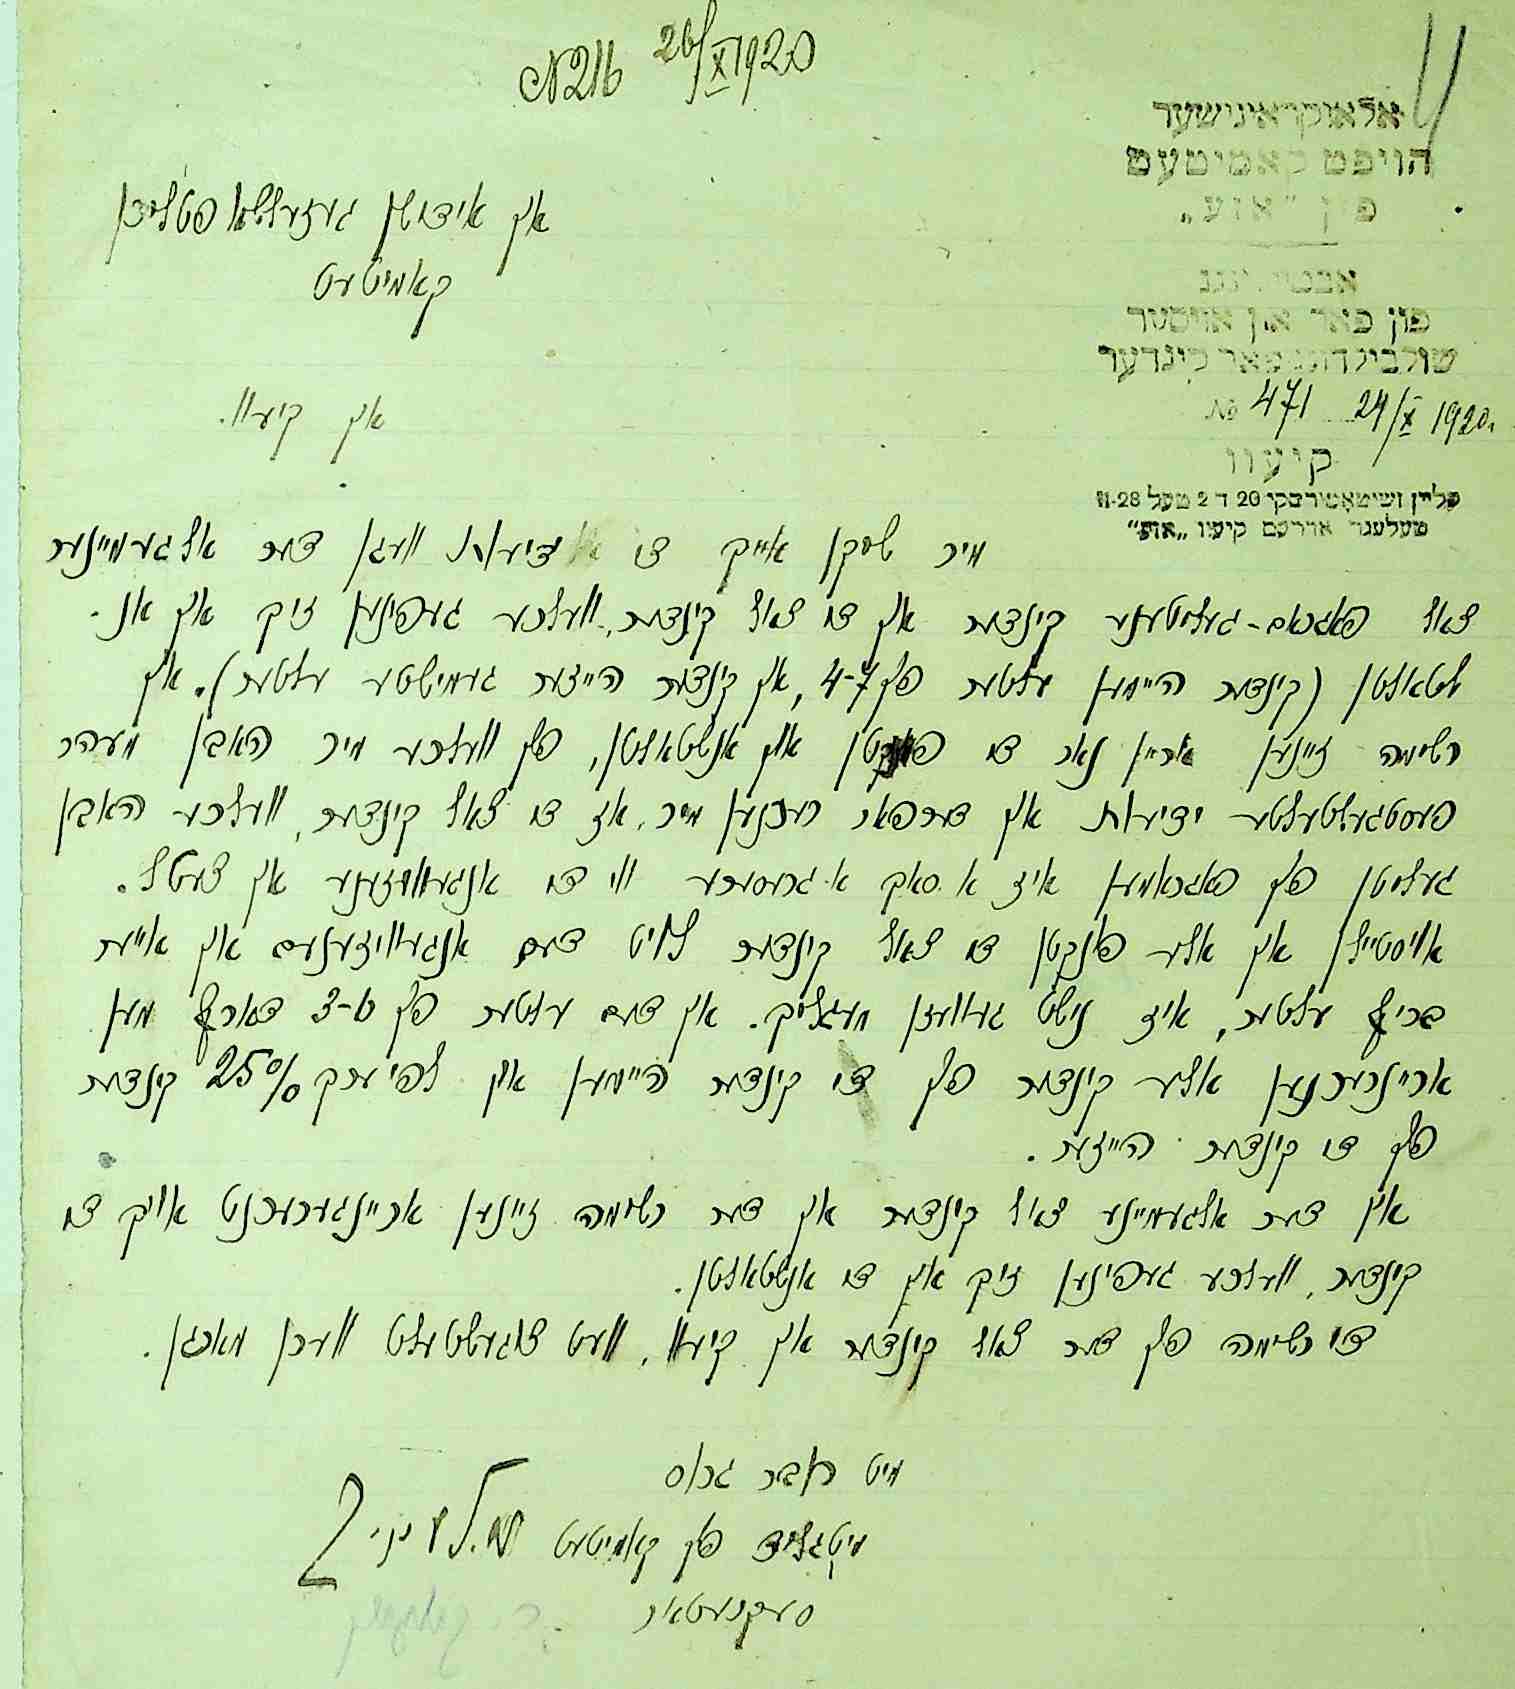 №216 26/X 1920
אלאוקראינישער
הויפט קאמיטעט
פון "אזע"
אין אידישן געזעלשאפטליכן
קאמיטעט
פון פאר און אויסער
שולבילדונג פאר קינדער
אין קיעוו.
№ 471 24/X 1920.
קיעוו
קליין זשיטאמירסקי 20 ד 2 טעל 28-11
טעלעגר אדרעס קיעוו „אזע"
מיר שיקן אייך די ידיעות וועגן דער אלגעמיינער
צאל פאגראם-געליטענע קינדער אין די צאל קינדער, וועלכע געפינען זיך אין אנ-
שטאלטן (קינדער היימען עלטער פון 4-7, אין קינדער הייזער געמישטע עלטער). אין
רשימה זיינען אריין נאר די פונקטן און אנשטאלטן, פון וועלכע מיר האבן מעהר
פעסטגעשטעלטע ידיעות אין דערפאר רעכנען מיר, אז די צאל קינדער, וועלכע האבן
געליטן פון פאגראמען איז א סאך א גרעסערע ווי די אנגעוויזענע אין צעטל.
אויסטיילן אין אלע פונקטן די צאל קינדער לויט דעם אנגעוויזענעם אין אייער
בריף עלטער, איז נישט געווען מעגליך. אין דעם עלטער פון 3-6 דארף מען
אריינרעכענען אלע קינדער פון די קינדער היימען און לפי ערך 25% קינדער
פון די קינדער הייזער.
אין דער אלגעמיינע צאל קינדער אין דער רשימה זיינען אריינגערעכנט אויך די
קינדער, וועלכע געפינען זיך אין די אנשטאלטן.
די רשימה פון דער צאל קינדער אין קיעוו, וועט צוגעשטעלט ווערן מארגן.
מיט חבר גרוס
מיטגליד פון קאמיטעט
סעקרעטאר